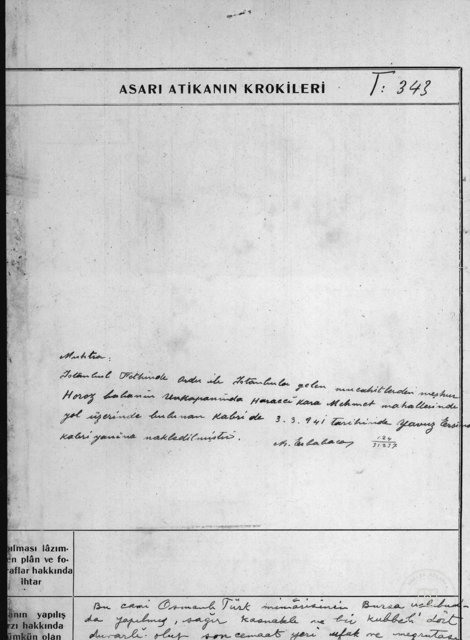 ASARI ATİKANIN KROKİLERİ
T: 343
Muhtıra:
İstanbul Fethinde Ordu ile İstanbula gelen mucahitlerden meşhur
Horoz babanın Unkapanında Haraccı Kara Mehmet mahallesinde
yol üzerinde bulunan kabri de 3.3.941 tarihinde Yavuz Ersinan
kabri yanına nakledilmiştir.
ılması lâzım-
en plân ve fo-
raflar hakkında
ihtar
anın yapılış
rzı hakkında
ümkün olan
Bu cami Osmanlı Türk mimârisinin Bursa
da yapılmış, sağır kasnaklı ve bir kubbeli dört
duvarlı olup son cemaat yeri ufak ve